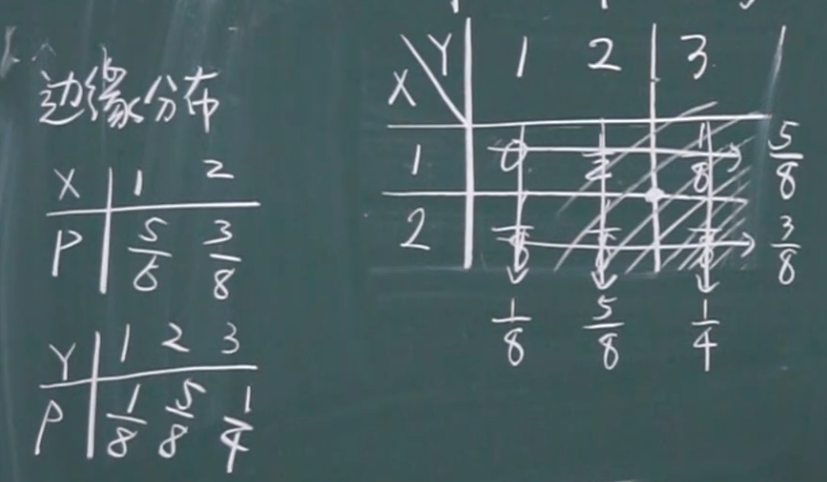 边缘分布
X 1 2
P 5/8 3/8
Y 1 2 3
P 1/8 5/8 1/4
X Y 1 2 3
1 0 1/2 1/8 5/8
2 1/8 1/8 1/8 3/8
1/8 5/8 1/4